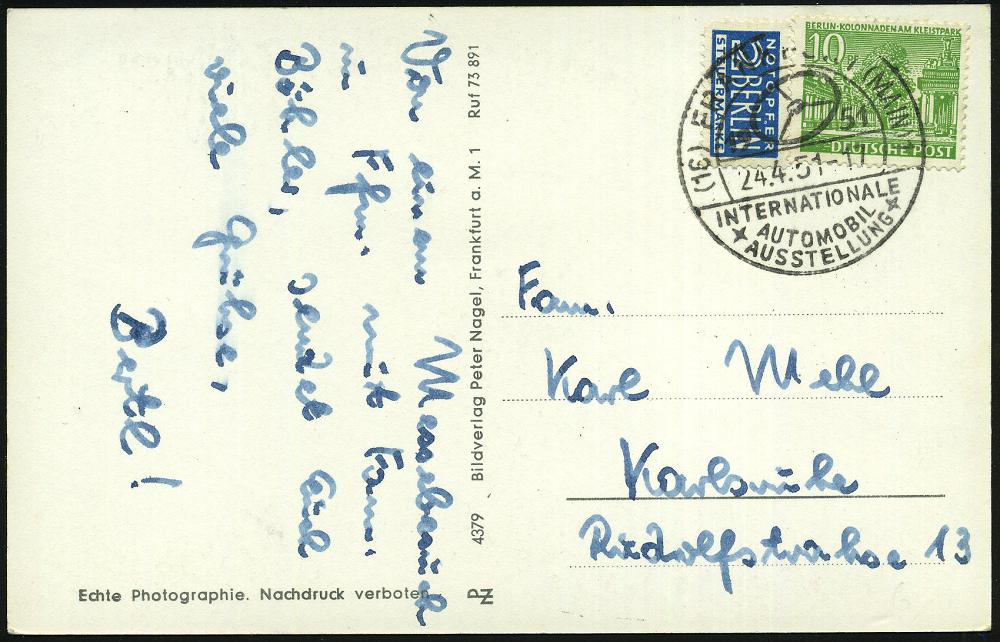 Von einem Messebesuch
in Ffm. mit Fam.
Böhles, sendet Euch
viele Grüsse,
Bertl!
4379 Bildverlag Peter Nagel, Frankfurt a. M. 1 Ruf 73 891
Echte Photographie. Nachdruck verboten
PZ
NOTOPFER
2 BERLIN
STEUERMARKE
BERLIN-KOLONNADEN AM KLEISTPARK
10
DEUTSCHE POST
(16) FRANKFURT (MAIN)
51
24.4.51-17
INTERNATIONALE
AUTOMOBIL
AUSSTELLUNG
Fam.
Karl Mehl
Karlsruhe
Rudolfstrahse 13